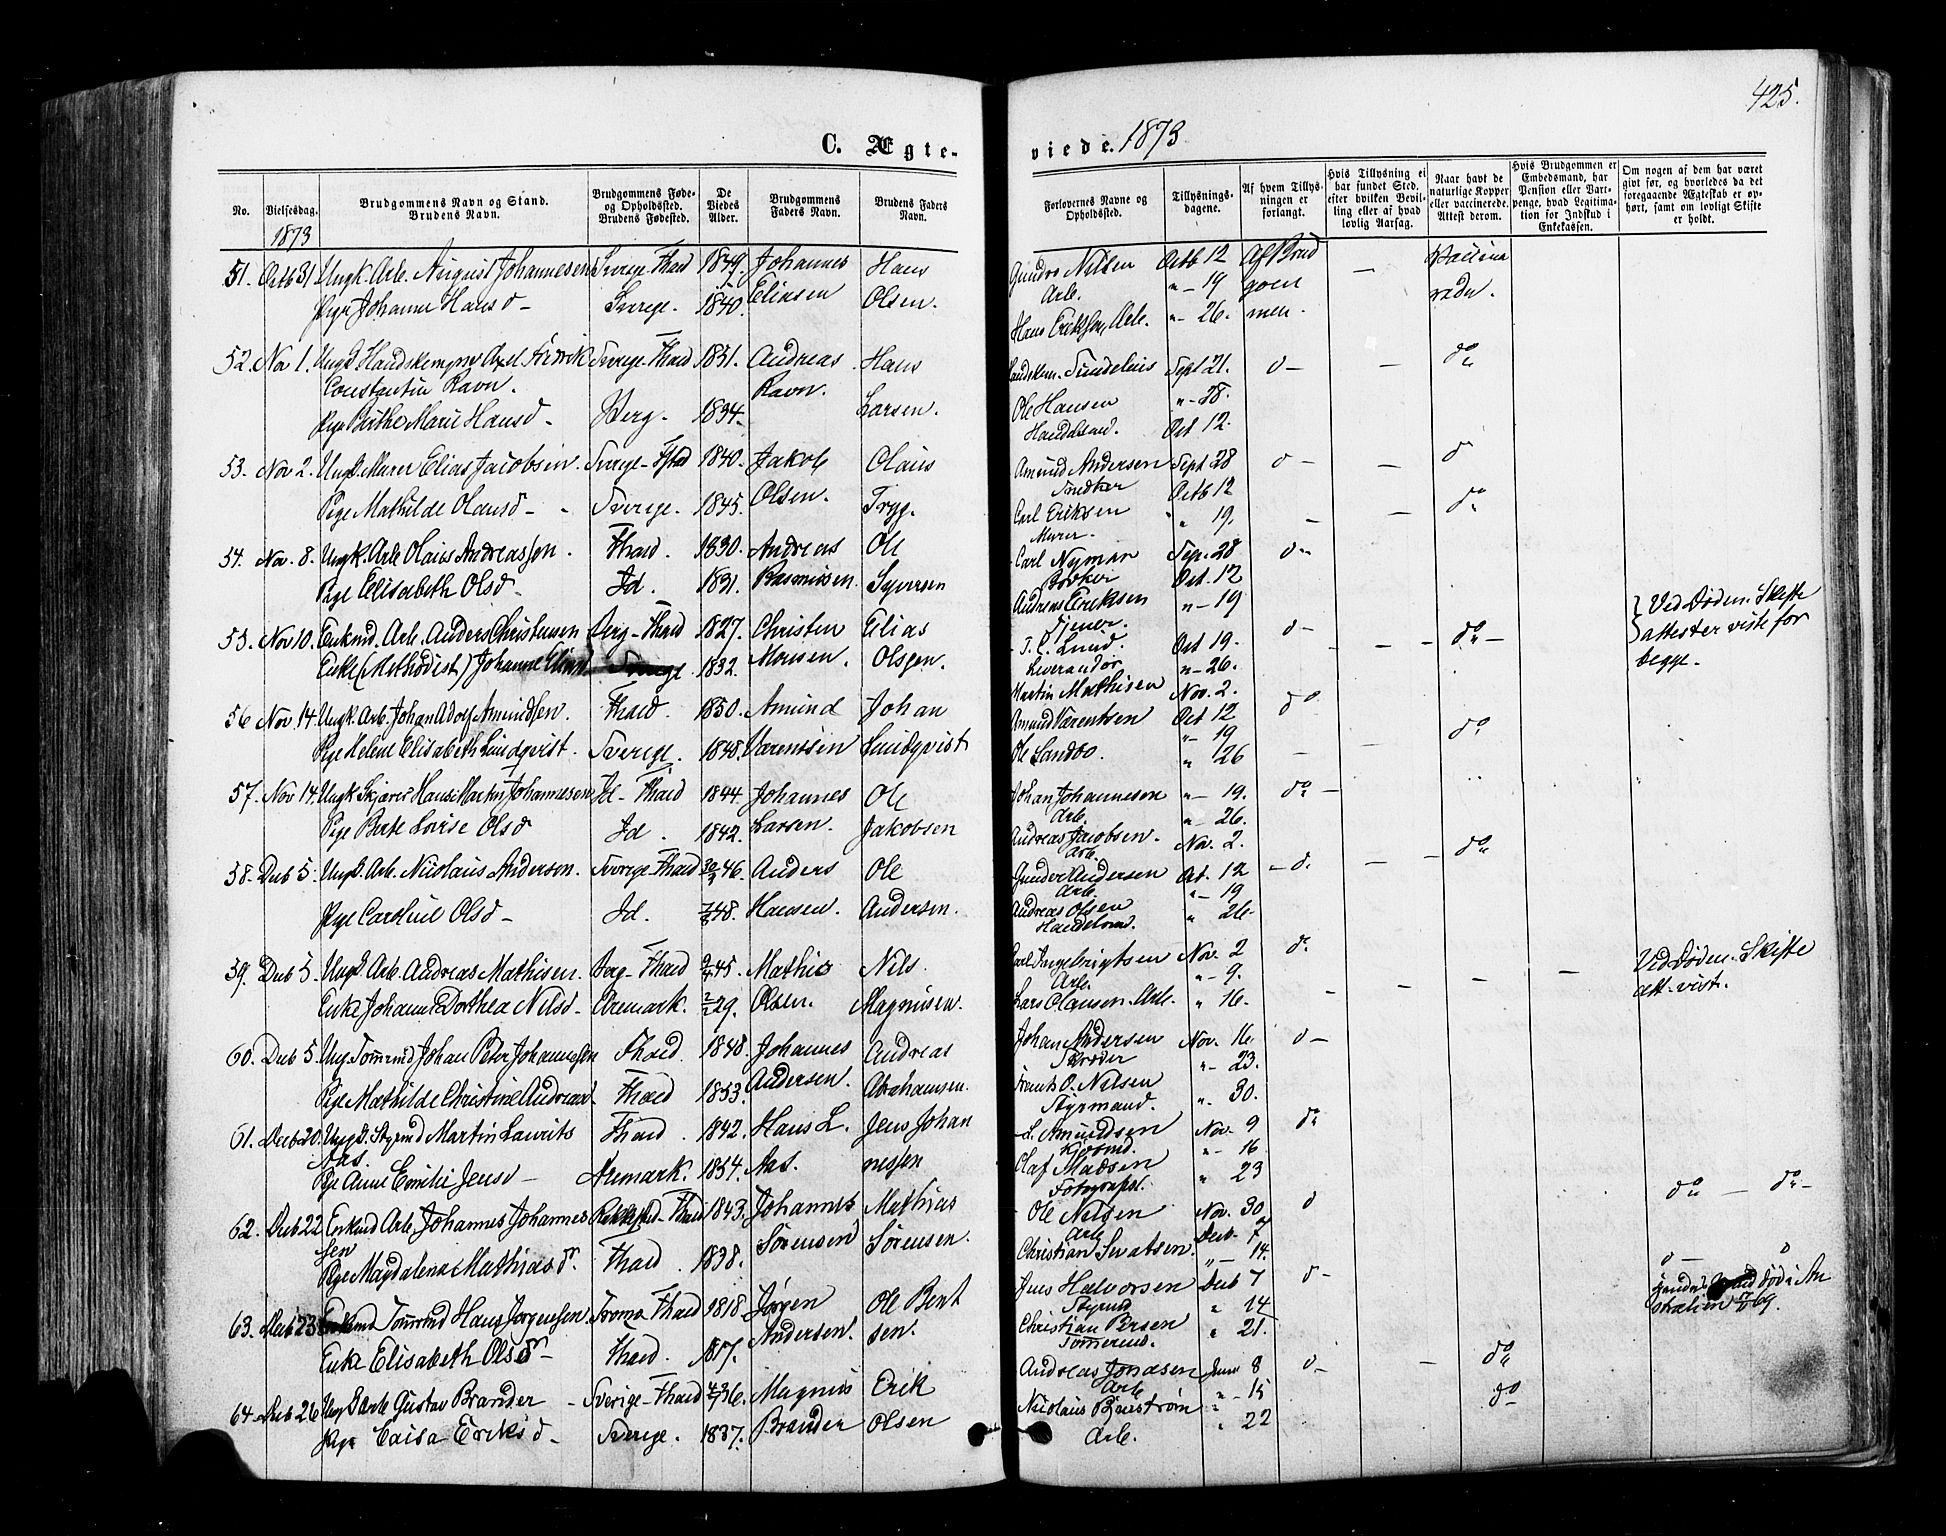 425.
C. Ægte-
viede. 1873
No.
Vielsesdag.
Brudgommens Navn og Stand.
Brudens Navn.
Brudgommens Føde-
og Opholdssted.
Brudens Fødested.
De
Viedes
Alder.
Brudgommens
Faders Navn.
Brudens Faders
Navn.
Forlovernes Navne og
Opholdssted.
Tillysnings-
dagene.
Af hvem Tillys-
ningen er
forlangt.
Hvis Tillysning ei
har fundet Sted,
efter hvilken Bevil-
ling eller af hvad
lovlig Aarsag.
Naar havt de
naturlige Kopper
eller vaccinerede.
Attest derom.
Hvis Brudgommen er
Embedsmand, har
Pension eller Vart-
penge, hvad Legitima-
tion for Indskud i
Enkekassen.
Om nogen af dem har været
givt før, og hvorledes da det
foregaaende Ægteskab er op-
hørt, samt om lovligt Skifte
er holdt.
1873
51. Octb 31 Ungk. Arb. August Johannesen Sverige-Thæd 1849. Johannes Hans Gunder Nilsen Octb 12 Af Brud
Pige Johanne Hansd - Sverige. 1840. Eliasen Olsen. Arb. " - 19 gom
Hans Eriksen, Arb. " - 26. men.
52. Nov 1. Ungk Handskempr Axel Fredrik Sverige-Thæd 1851. Andreas Hans Sept 21. d - - do
Constantin Ravn. Ravn. Larsen. Ole Hansen " - 28.
Pige Berthe Marie Hansd - Berg. 1834. Handelsmd. Oct 12.
53. Nov 2. Ungk. Murer Elias Jacobsen. Sverige - Thæd 1840. Jakob Olaus Amund Andersen Sept 28 d - - d
Pige Mathilde Olausd - Sverige. 1845. Olsen. Tryg. Snedker Octb 12
Carl Eriksen " 19.
Murer.
54. Nov. 8. Ungk. Arb Olaus Andreassen. Thæd. 1830. Andreas Ole Carl Nyman Sep. 28
Pige Elisabeth Olsd - Id. 1831. Rasmussen. Syversen Oct. 12
Andreas Eriksen " - 19
55. Nov 10. Enkmd. Arb. Anders Christensen Berg - Thæd 1827. Christen Elias Lund. Oct 19. d - - do -
Enke (Methodist) Johanne Sverige 1832. Monsen. Olsen. Leverandør " - 26.
Martin Mathisen Nov. 2.
Ved Døden. Skifte
attester viste for
begge.
56 Nov 14. Ungk. Arb. Johan Adolf Amundsen. Thæd. 1850. Amund Johan Oct 12 do
Pige Helene Elisabeth Lundqvist. Sverige. 1848. Lundqvist " - 19
Ole Sandbo. " 26
57. Nov 14. Ungk Skjærer Hans Martin Johannesen Id - Thæd 1844. Johannes Ole Johan Johannesen " - 19. do -
Pige Berte Lovise Olsd Id. 1842. Larsen. Jakobsen Arb. " - 26.
Andreas Jacobsen. Nov. 2.
Arb.
58. Decb 5. Ungk. Arb. Nicolaus Andersen. Sverige - Thæd 46. Anders Ole Gunder Andersen Oct. 12 - d.
Pige Caroline Olsd - Id. 48. Hansen. Andersen. Arb. " - 19
Andreas Olsen " 26.
Handelsmd.
59. Decb 5. Ungk. Arb. Andreas Mathisen. Berg - Thæd 45. Mathis Nils. Carl Ingebrigtsen Nov. 2 d.
Enke Johanne Dorthea Nilsd - Aremark. 29. Olsen. Magnusen. Arb. " - 9.
Lars Olausen. Arb. " 16.
Ved Døden. Skifte
att. vist.
60. Decb 5. Ung. Tømmd Johan Peter Johannesen Thæd. 1848. Johannes Andreas Johan Andersen Nov. 16. d -
Pige Mathilde Christine Andreasd. Thæd 1853. Andersen. Abrahamsen. " - 23.
O. Nilsen " 30.
Styrmand.
61. Decb 20. Ungk. Styrmd Martin Laurits Thæd. 1842. Hans L. Jens Johan L. Amundsen Nov. 9 do
Aas. Aas. nessen Kjøbmd. " - 16
Pige Anne Emilie Jensd - Aremark. 1854. Olaf Madsen " 23
Fotograf.
62. Decb 22 Enkmd Arb. Johannes Johannes Rakkestad - Thæd 1843. Johannes Mathias Ole Nilsen Nov. 30 d
sen Sørensen Sørensen. Arb. Decb. 7
Pige Magdalena Mathiasdr. Thæd. 1838. Christian " - 14.
do - do -
63. Decb 23 Tømmmd Hans Jørgensen. Tromø - Thæd 1818. Jørgen Ole Bent Jens Halvorsen Decb 7 d -
Enke Elisabeth Olsdr - Thæd. 1817. Andersen. sen. Styrmd " 14
Christian " 21.
Tømmermd.
død i Au
stralien 69.
64. Decb 26 Ungk Arb Gustav Brander - Sverige - Thæd 36. Magnus Erik Andreas Jonasen 8 d - - do
Pige Caisa Eriksd - Sverige. 1837. Brander Olsen Arb " - 15
Nicolaus " 22
Arb.